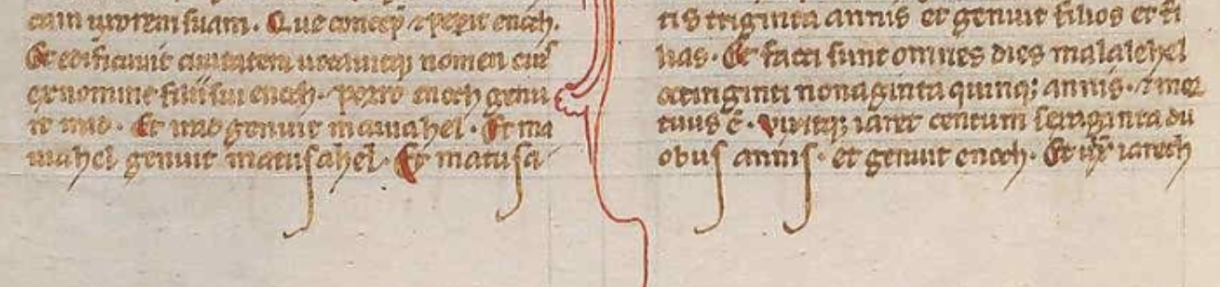 cain uxorem suam. Que concep̄ ⁊ peperit enoch.
Et edificavit civitatem vocavitq; nomen eiꝰ
ex nomine filii sui enoch. porro enoch genu
it irad. Et irad genuit mauiahel. Et ma
uiahel genuit matusahel. Et matusa
tis triginta annis et genuit filios et fi
lias. Et facti sunt omnes dies malalehel
octinginti nonaginta quinq; annis. ⁊ mor
tuus ē. vixitq; iaret centum sexaginta du
obus annis. et genuit enoch. Et iarech